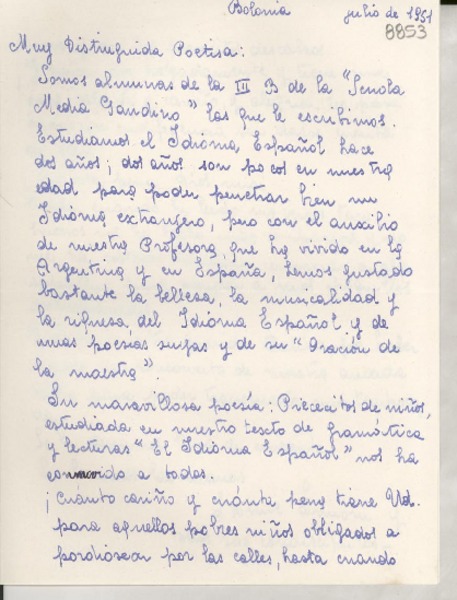 Bolonia julio de 1951
8853
Muy Distinguida Poetisa:
Somos alumnas de la III B de la "Scuola
Media Gandino" las que le escribimos.
Estudiamos el Idioma Español hace
dos años; dos años son pocos en nuestra
edad para poder penetrar bien un
Idioma extranjero, pero con el auxilio
de nuestra Profesora, que ha vivido en la
Argentina y en España, hemos gustado
bastante la belleza, la musicalidad y
la riqueza, del Idioma Español y de
unas poesias suyas y de su "Oración de
la maestra".
Su maravillosa poesía: Piececitos de niños,
estudiada en nuestro texto de gramática
y lecturas "El Idioma Español" nos ha
conmovido a todas.
¡Cuánto cariño y cuánta pena tiene Ud.
para aquellos pobres niños obligados a
pordiosear por las calles, hasta cuando